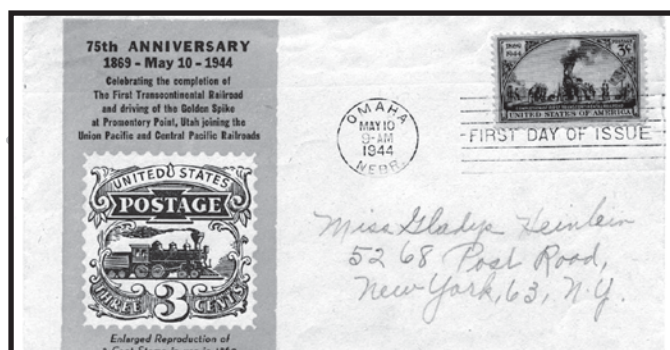 75th ANNIVERSARY
1869 - May 10 - 1944
Celebrating the completion of
The First Transcontinental Railroad
and driving of the Golden Spike
at Promontory Point, Utah joining the
Union Pacific and Central Pacific Railroads
UNITED STATES
POSTAGE
THREE 3 CENTS
Enlarged Reproduction of
OMAHA
MAY 10
9-AM
1944
NEBR.
1869
1944
POSTAGE
3¢
UNITED STATES OF AMERICA
FIRST DAY OF ISSUE
Miss Gladys Heinlein
52 68 Post Road,
New York, 63, N.Y.